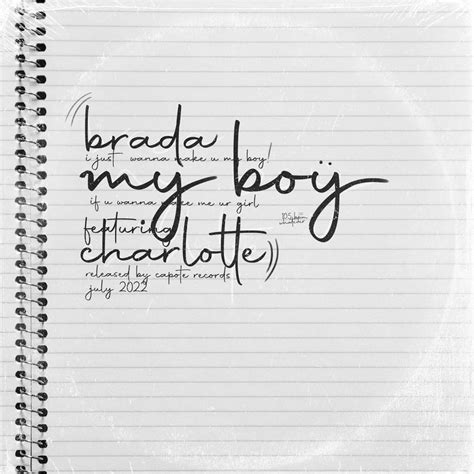 brada
i just wanna make u my boy!
my boÿ
if u wanna make me ur girl
featuring
charlotte
released by capote records
july 2022